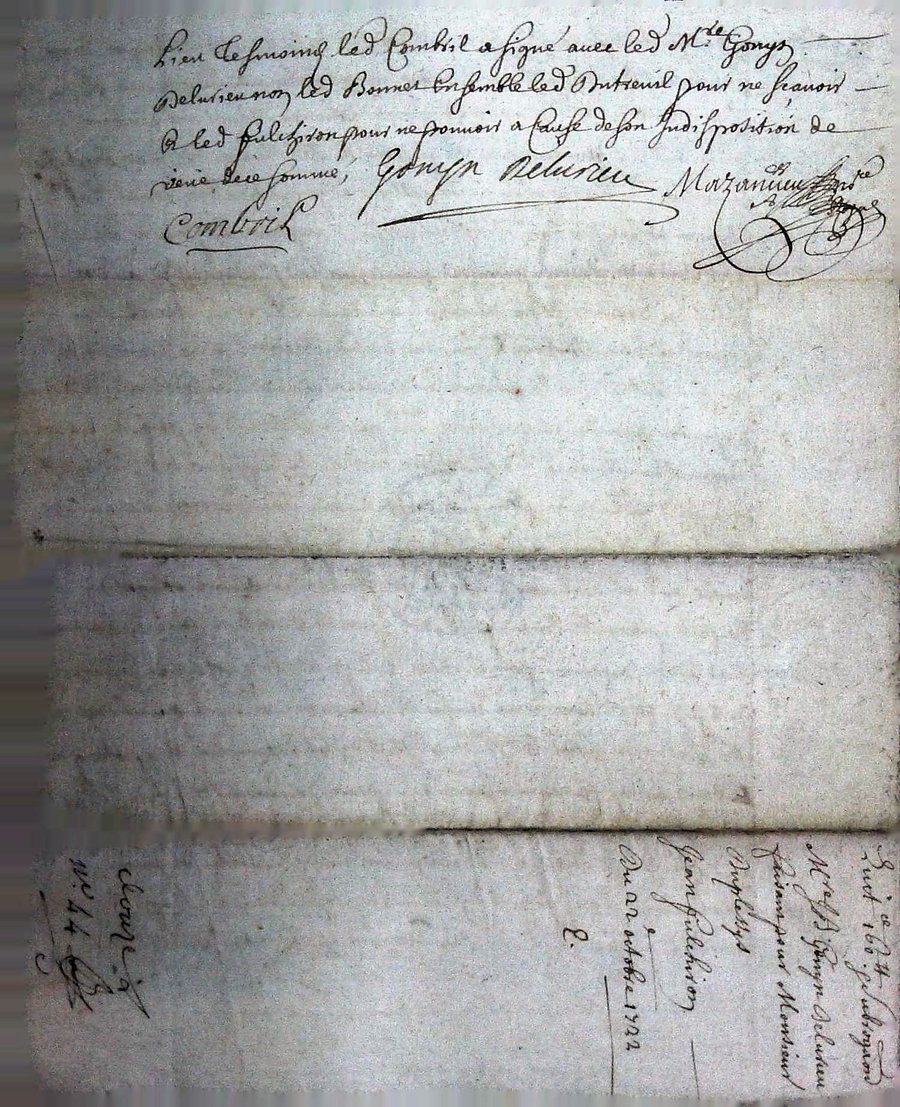 Lieu tesmoings led Combril a signé avec led Mre Gonyn
Delurieu non led Bonnet Ensemble led Dutreuil pour ne sçavoir
& led fulchiron pour ne pouvoir a Cause de son Indisposition de
ce somme,
Gonyn Delurieu
Mazanieu
Combril
Mre Gonyn Delurieu
faisant pour Monsieur
Duplessys
Jean fulchiron
Du 22 octobre 1722
2.
no. 44